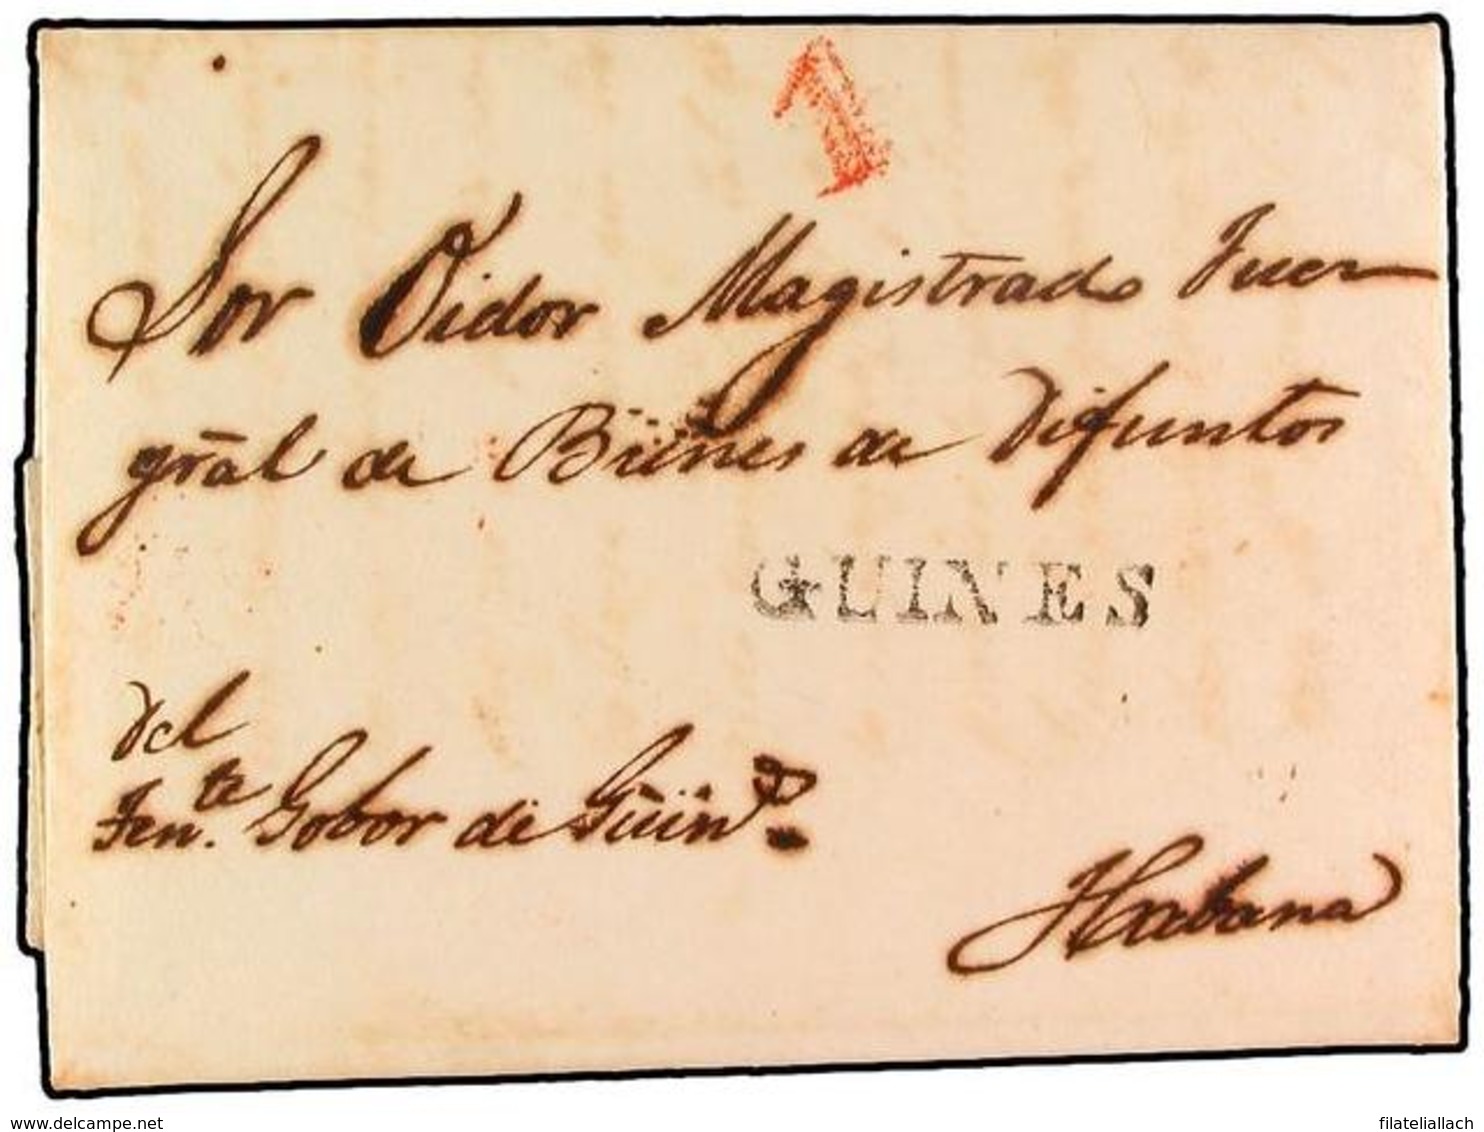 1
Sor Oidor Magistrado Juez
gral de Bienes de Difuntos
GUINES
del
Tente. Gobor de Güins
Habana
delcampe.net
filateliallach